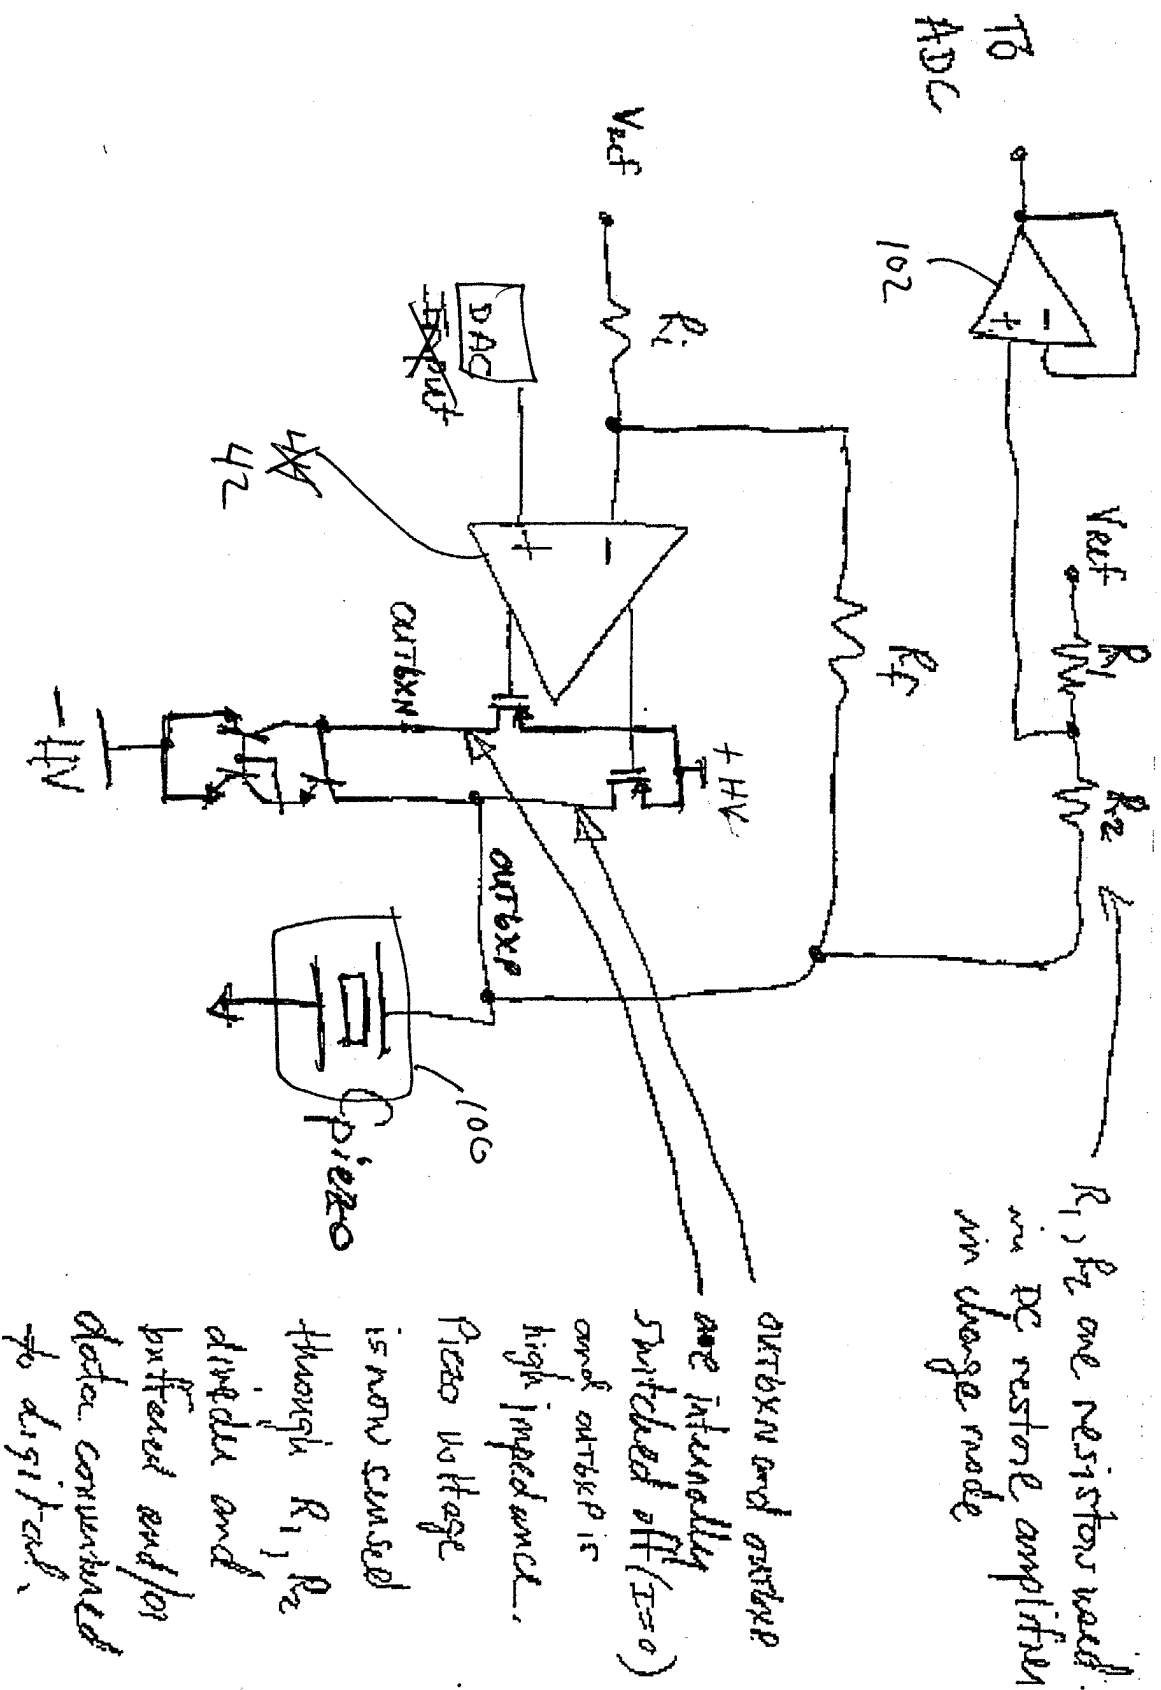 TO
ADC
102
+
−
VRef
R1
R2
R1, R2 are resistors used
in DC restore amplifier
in charge mode
Vref
Ri
Rf
DAC
+
−
44
42
OUT6XN
OUT6XP
+HV
−HV
106
Cpiezo
OUT6XN and OUT6XP
are internally
switched off (I=0)
and OUT6XP is
high impedance.
Piezo voltage
is now sensed
through R1, R2
divider and
buffered and/or
data converted
to digital.